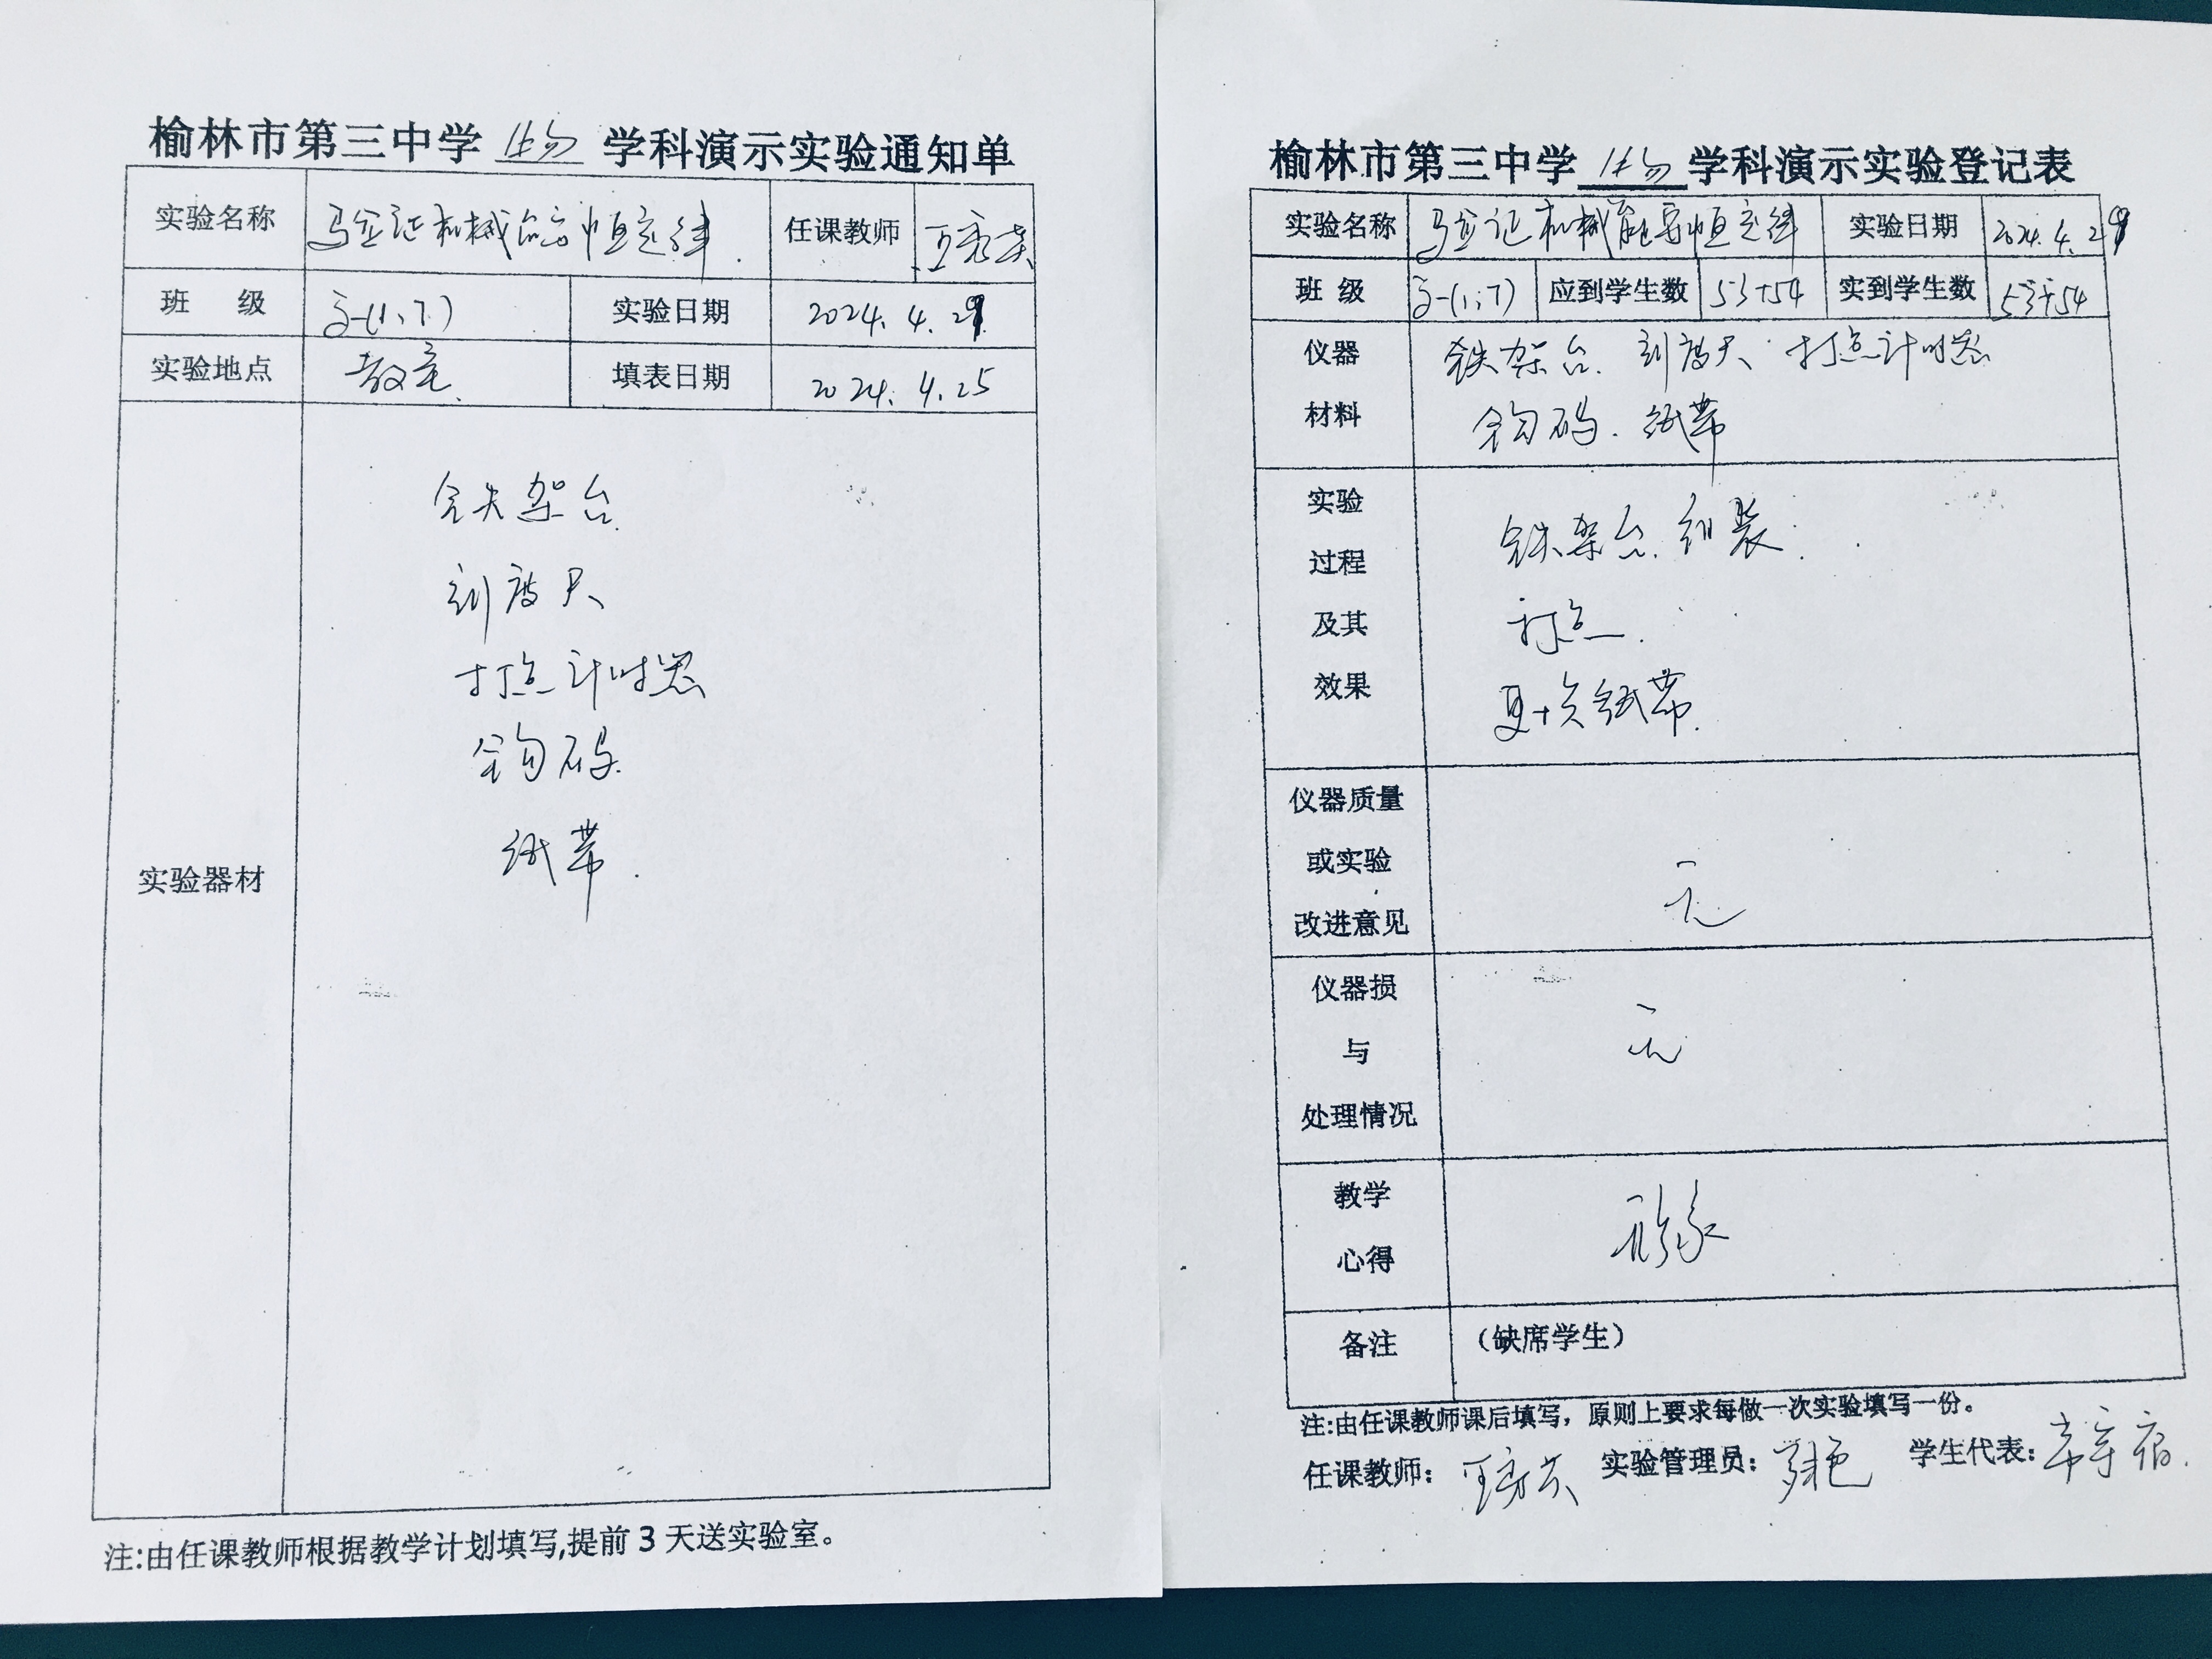 榆林市第三中学 物 学科演示实验通知单
实验名称 验证机械能守恒定律. 任课教师 王
班 级 高一(1、7) 实验日期 2024.4.29
实验地点 教室. 填表日期 2024.4.25
实验器材
铁架台
刻度尺
打点计时器
钩码
纸带.
注:由任课教师根据教学计划填写,提前 3 天送实验室。
榆林市第三中学 物 学科演示实验登记表
实验名称 验证机械能守恒定律 实验日期 2024.4.29
班 级 高一(1、7) 应到学生数 53+54 实到学生数 53+54
仪器 铁架台. 刻度尺 打点计时器
材料 钩码. 纸带
实验 铁架台. 组装.
过程
及其 打点.
效果 更换纸带.
仪器质量
或实验
改进意见 无
仪器损
与 无
处理情况
教学
心得
备注 （缺席学生）
注:由任课教师课后填写，原则上要求每做一次实验填写一份。
任课教师： 王 实验管理员： 学生代表：